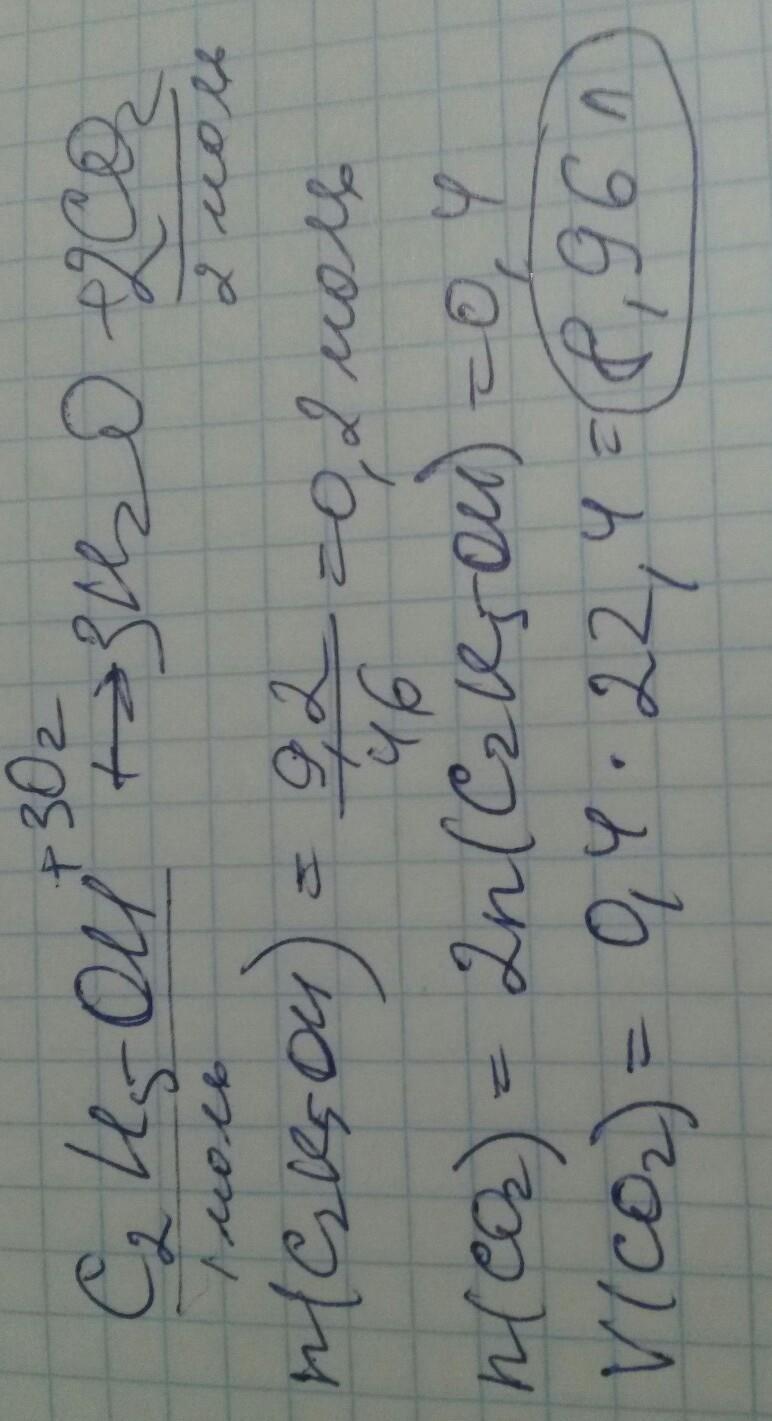 C₂H₅OH +3O₂ → 3H₂O + 2CO₂
1 моль 2 моль
n(C₂H₅OH) = 9,2/46 = 0,2 моль
n(CO₂) = 2n(C₂H₅OH) = 0,4
V(CO₂) = 0,4 · 22,4 = 8,96 л